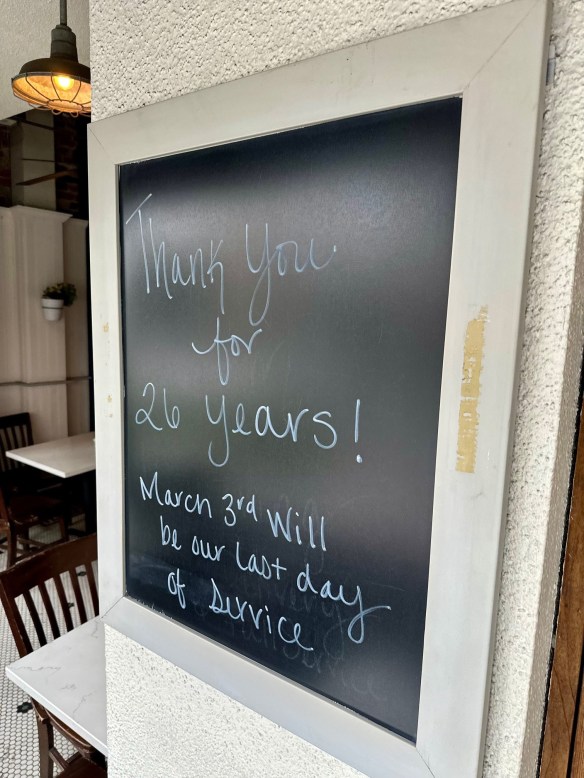 Thank You
for
26 years!
March 3rd Will
be our last day
of service